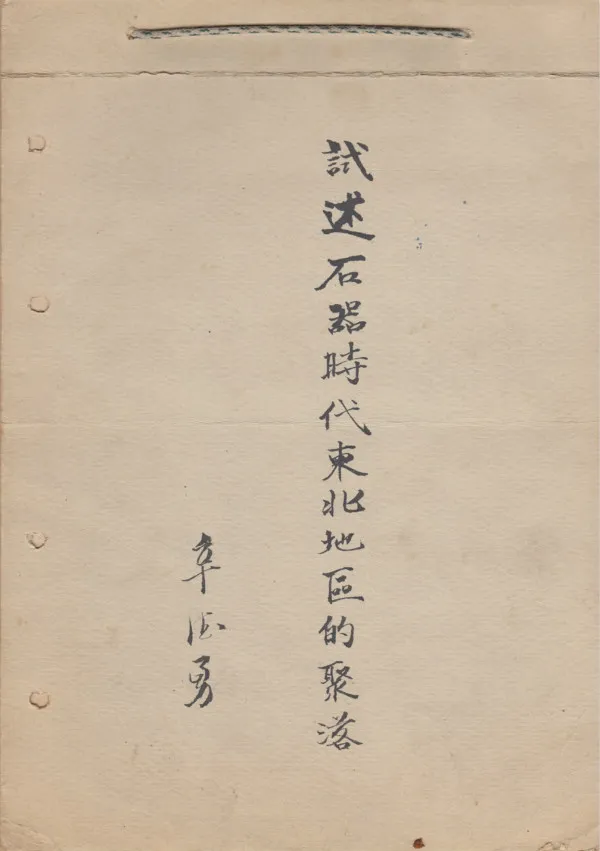 試述石器時代東北地區的聚落
辛德勇